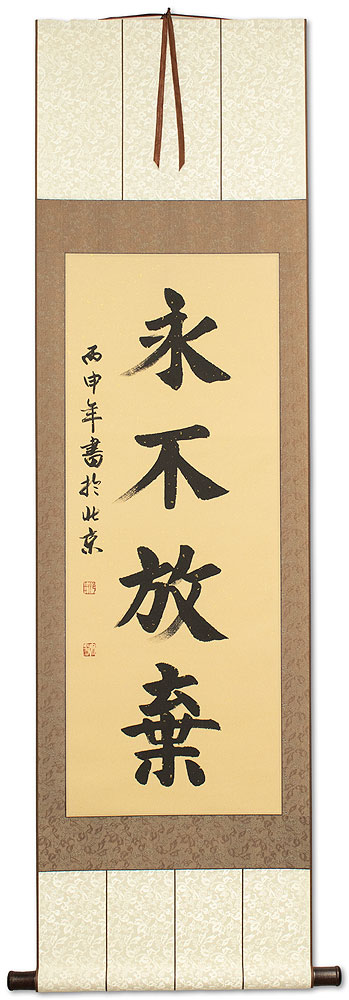 永不放棄
丙申年書於北京